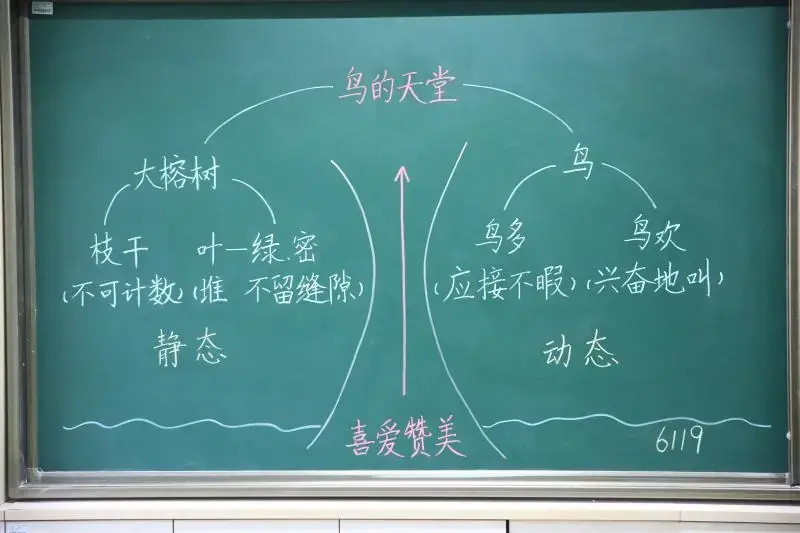 鸟的天堂
大榕树 鸟
枝干 叶—绿.密 鸟多 鸟欢
(不可计数)(堆 不留缝隙) (应接不暇)(兴奋地叫)
静态 动态
喜爱赞美
6119